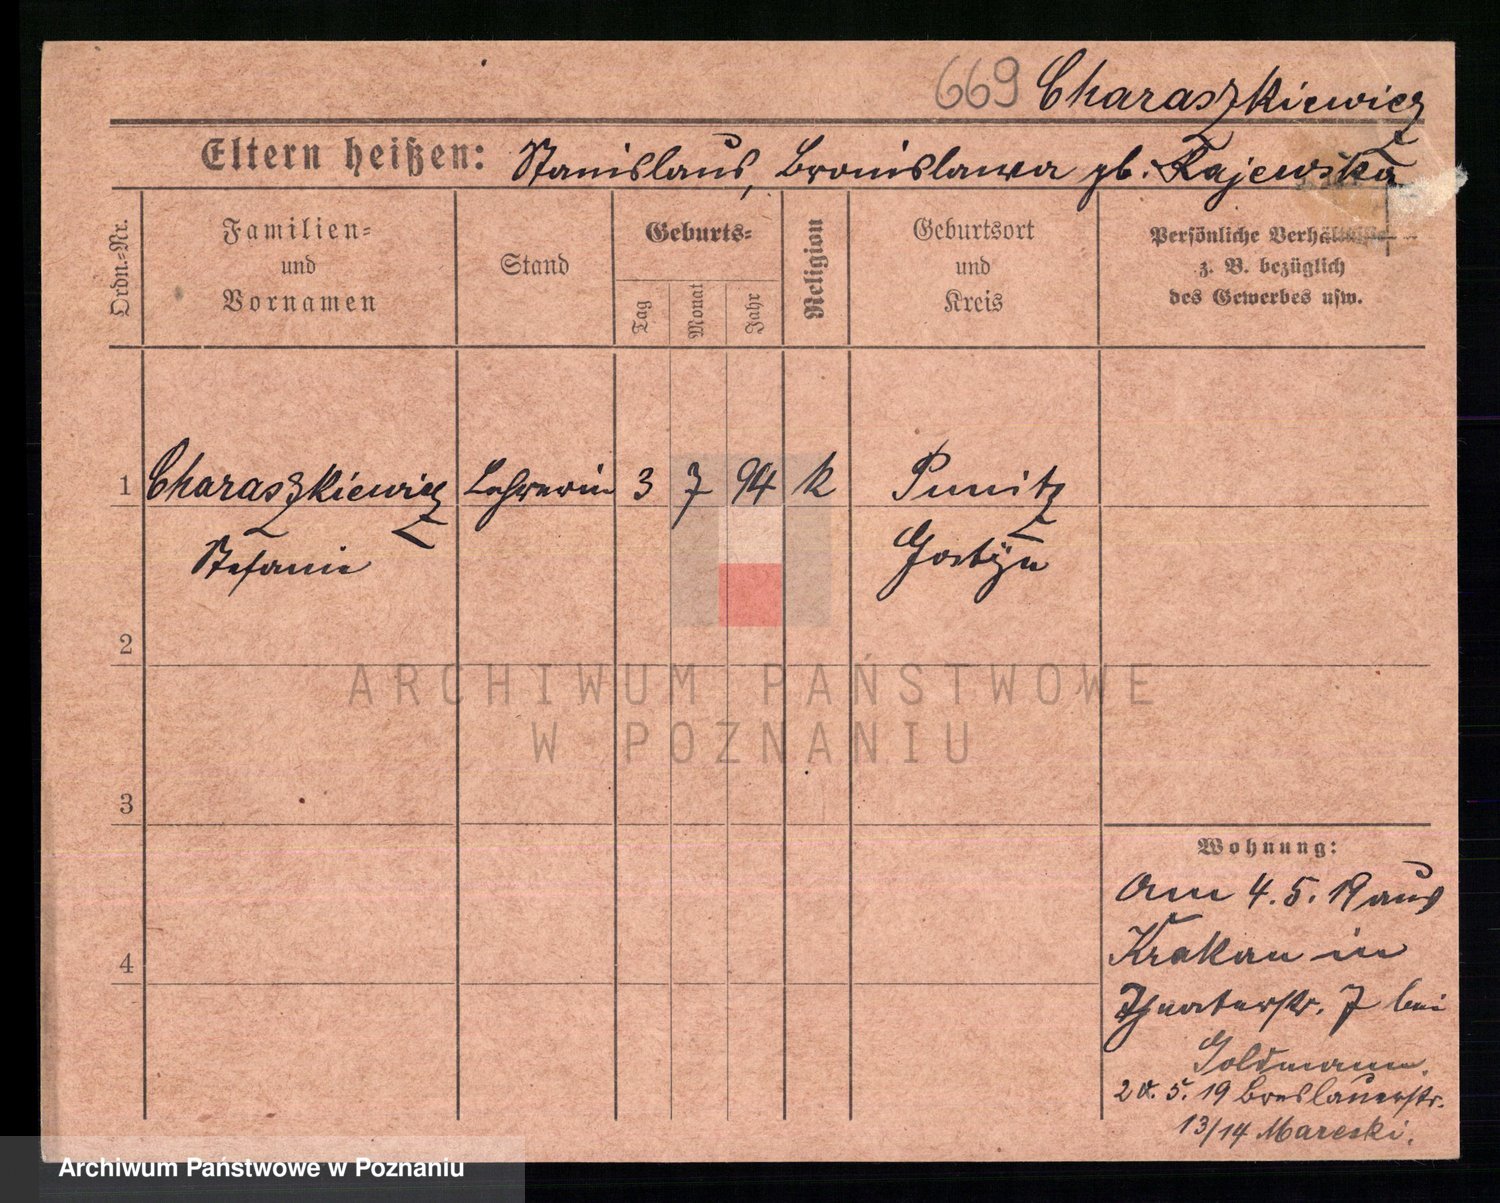 669 Charaszkiewicz
Eltern heißen: Stanislaus, Bronislawa gb. Rajewska
Ordn.-Nr.
Familien-
und
Vornamen
Stand
Geburts-
Tag
Monat
Jahr
Religion
Geburtsort
und
Kreis
Persönliche Verhältnisse
z. B. bezüglich
des Gewerbes usw.
1 Charaszkiewicz Lehrerin 3 7 94 k Punitz
Stefanie Gostyn
2
3
4
Wohnung:
Am 4. 5. 19 aus
Krakau in
Theaterstr. 7 bei
Goldmann.
5. 19 Breslauerstr.
13/14 Mareski.
ARCHIWUM PAŃSTWOWE
W POZNANIU
Archiwum Państwowe w Poznaniu